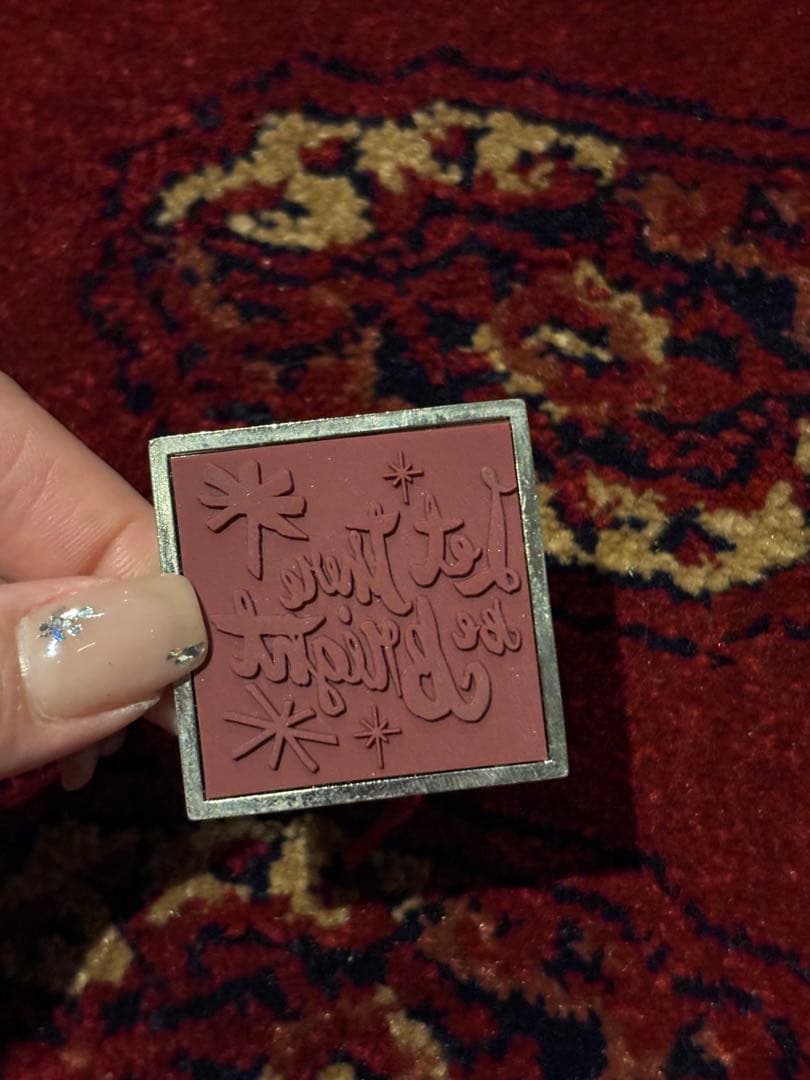 Let There
be Bright